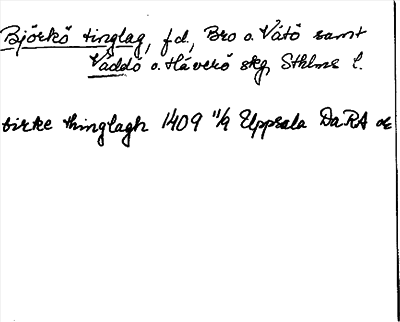 Björkö tinglag, fd, Bro o. Vätö samt
Väddö o. Häverö skg, Sthlms l.
birke thinglagh 1409 11/9 Uppsala DaRA or